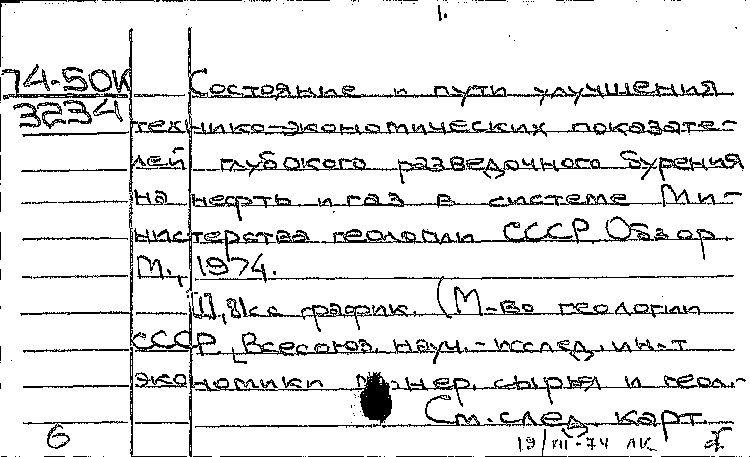 1.
74-50К
3234
Состояние и пути улучшения
технико-экономических показате-
лей глубокого разведочного бурения
на нефть и газ в системе Ми-
нистерства геологии СССР. Обзор.
М., 1974.
с график. (М-во геологии
СССР. Всесоюз. науч.-исслед. ин-т
экономики минер. сырья и геол.-
См. след. карт.
6
19/III-74 ЛК